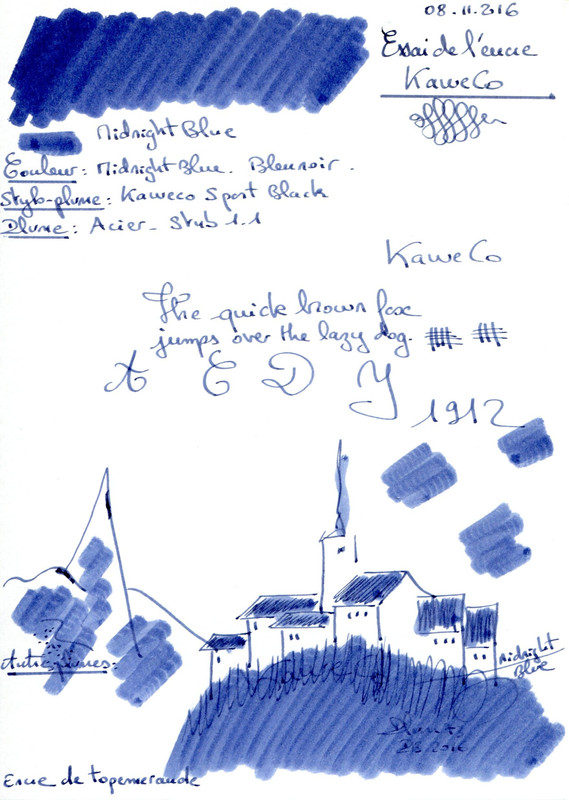 08.11.2016
Essai de l'encre
KaweCo
Midnight Blue
Couleur: Midnight Blue. Bleu noir.
Stylo-plume: Kaweco Sport Black
Plume: Acier - Stub 1.1
KaweCo
The quick brown fox
jumps over the lazy dog.
A E D Y
1912
Midnight
Blue
Autres
2016
Encre de topemeraude